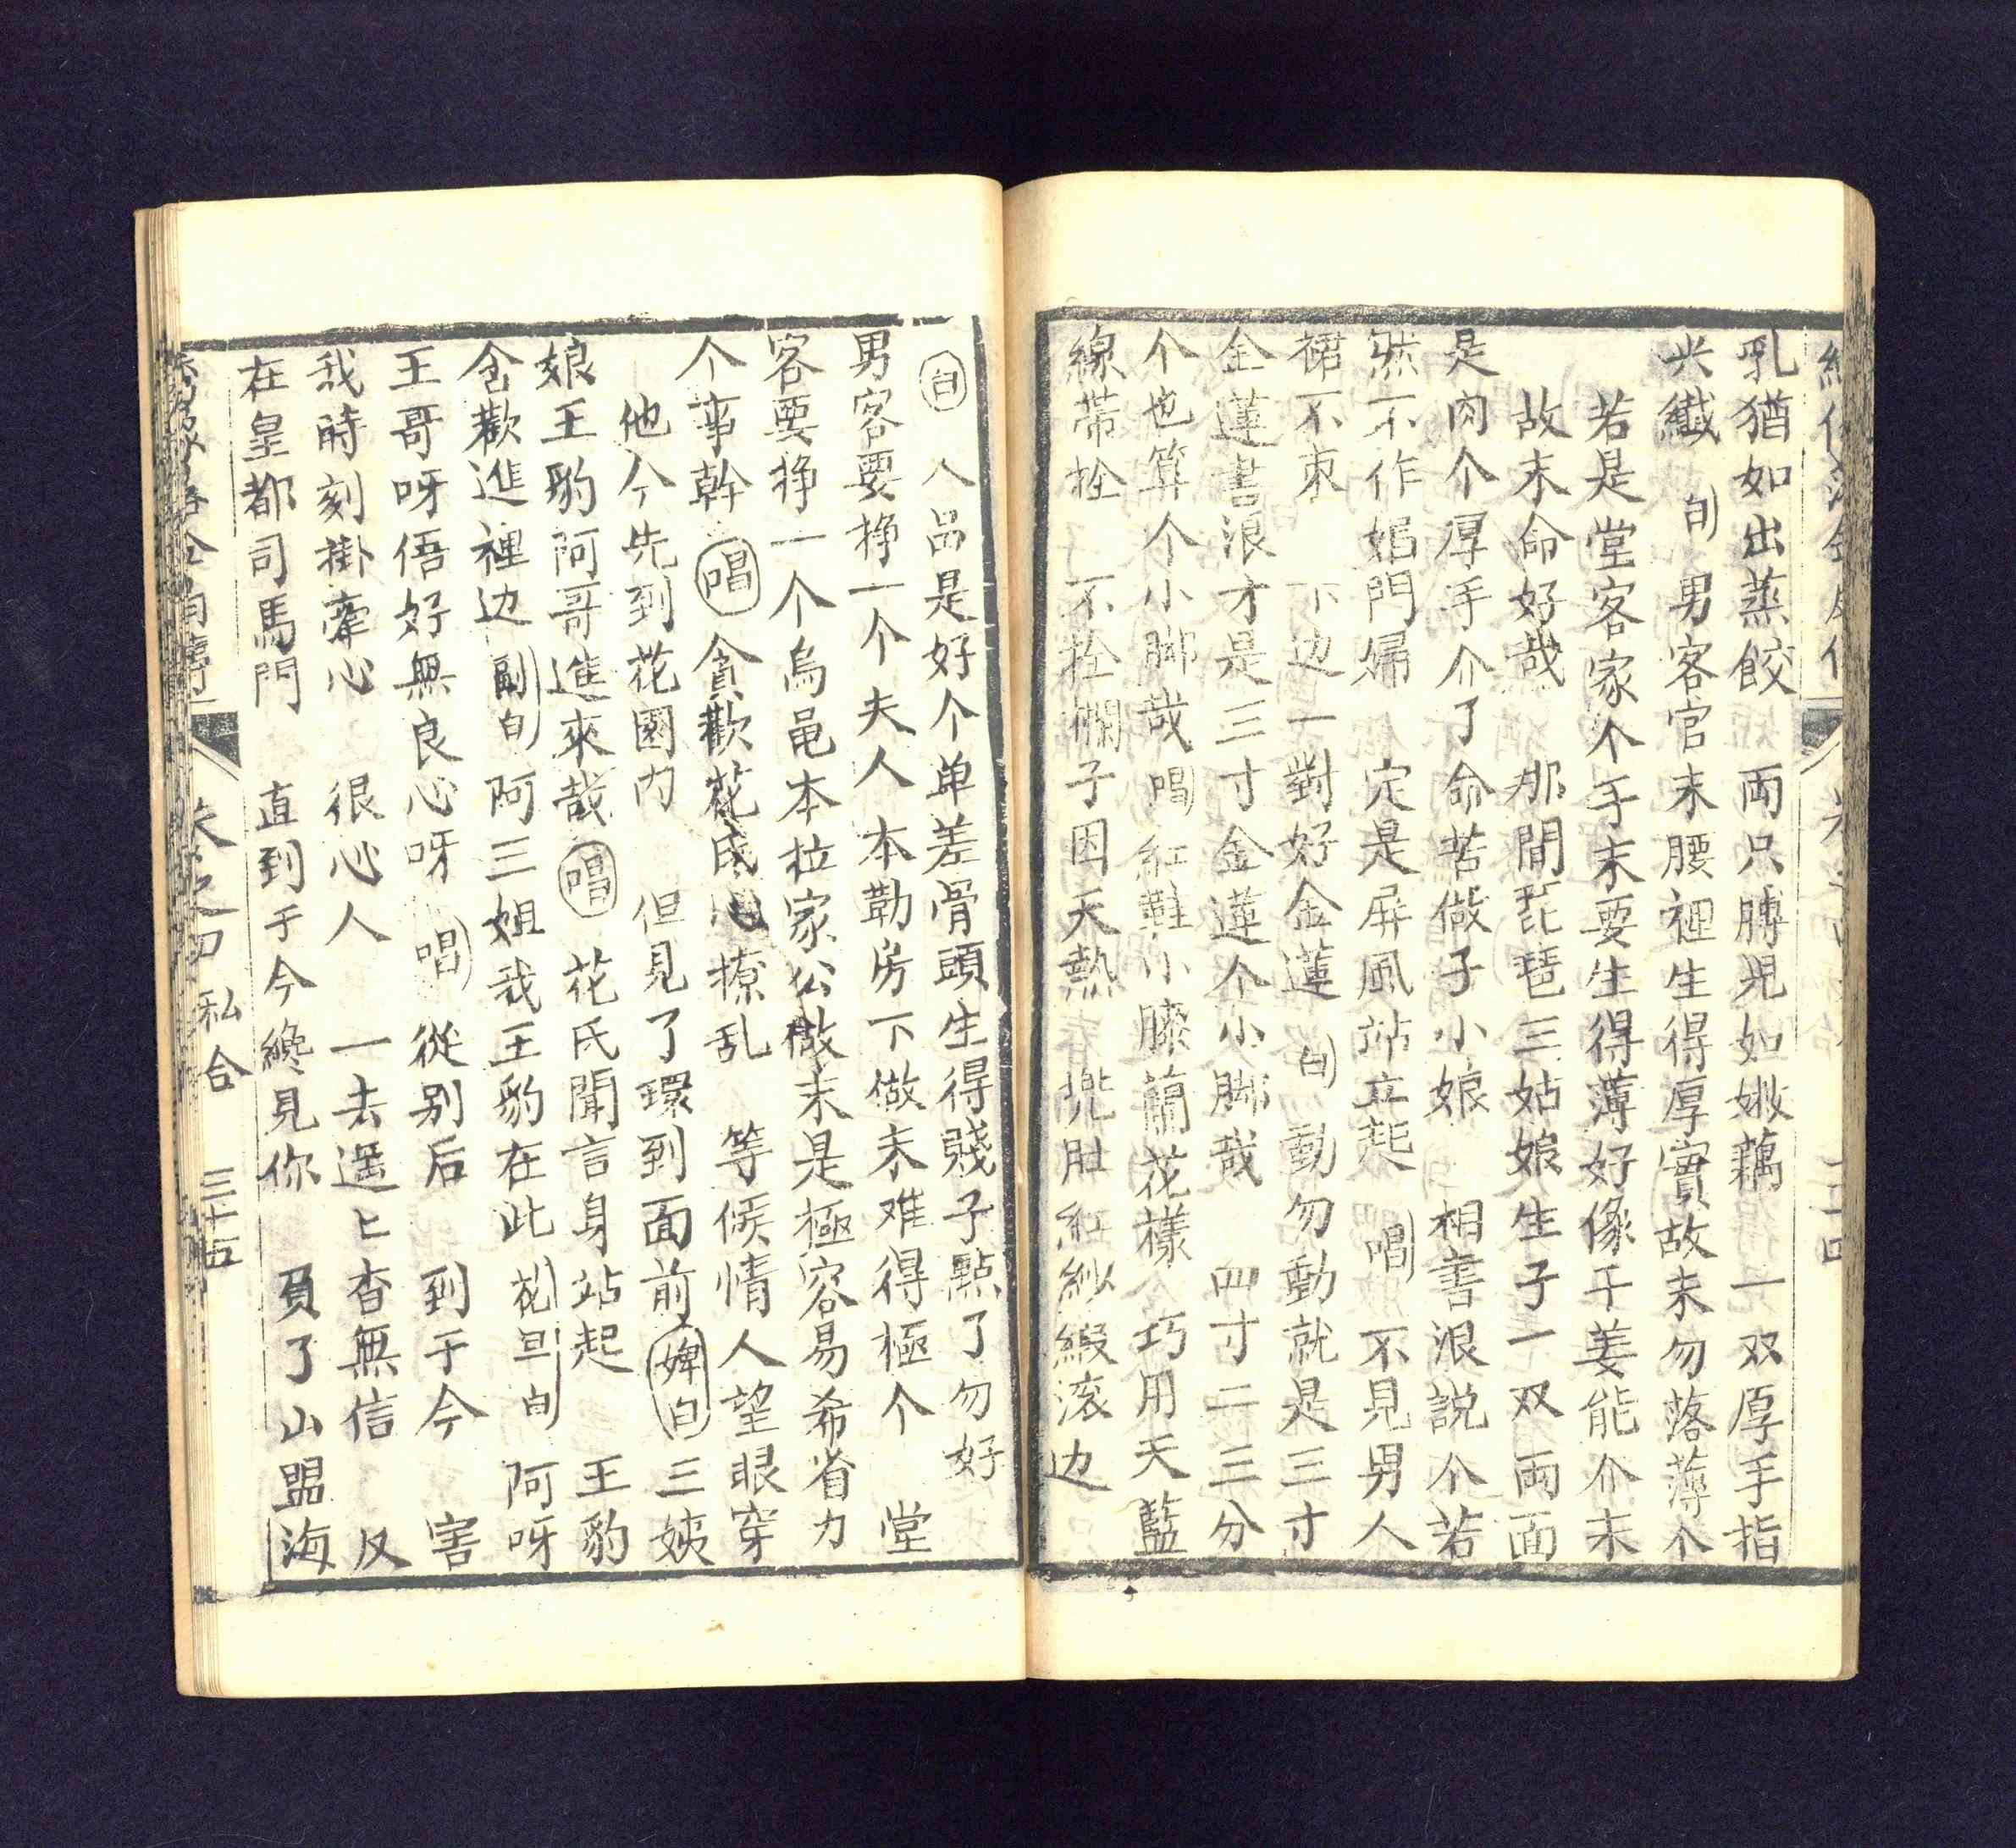 乳猶如出蒸餃 兩只膊児如嫩藕 一双厚手指
尖纖 白 男客官末腰裡生得厚實故末勿落薄个
若是堂客家个手末要生得薄好像干姜能个末
故末命好哉 那間琵琶三姑娘生子一双両面
是肉个厚手个了命苦做子小娘 相書浪説个若
然不作娼門婦 定是屏風站立起 唱 不見男人
裙不束 下边一對好金蓮 白 動勿動就是三寸
金蓮書浪才是三寸金蓮个小脚哉 四寸二三分
个也算个小脚哉 唱 紅鞋小膝蘭花樣 巧用天藍
線带拴 不拴欄子因天熱 兜肚紅紗緞滚边
白 八品是好个单差骨頭生得賤子點了勿好
男客要挣一个夫人本勒房下做末难得極个 堂
客要挣一个烏黾本拉家公做末是極容易希省力
个事幹 唱 貪歡花氏心撩乱 等候情人望眼穿
他今先到花園内 但見了環到面前 婢白 三姨
娘王豹阿哥進來哉 唱 花氏聞言身站起 王豹
含歡進裡边 副白 阿三姐我王豹在此 花旦白 阿呀
王哥呀倍好無良心呀 唱 從别后 到于今 害
我時刻掛牽心 很心人 一去遥匕杳無信 反
在皇都司馬門 直到于今纔見你 負了山盟海
卷之四 私合 三十五